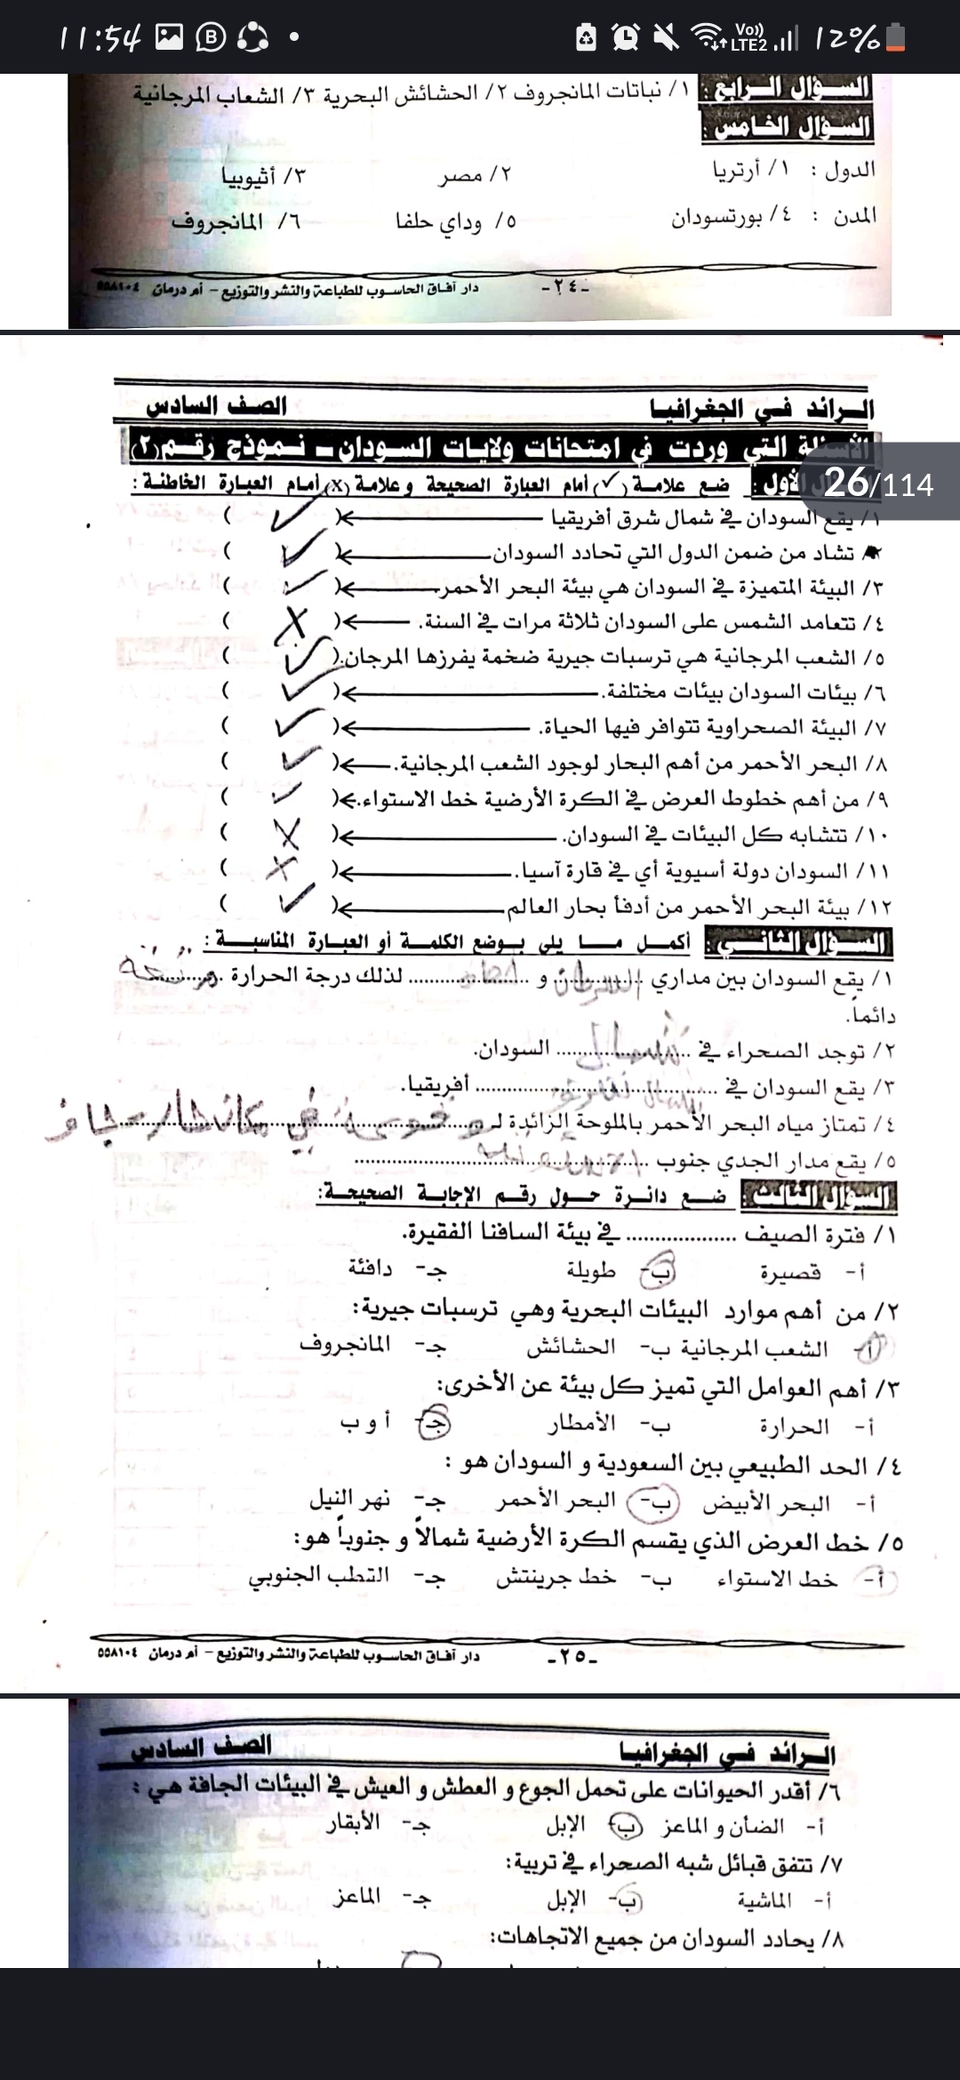 11:54
Vo)) LTE2 12%
السؤال الرابع : ١/ نباتات المانجروف ٢/ الحشائش البحرية ٣/ الشعاب المرجانية
السؤال الخامس :
الدول : ١/ أرتريا ٢/ مصر ٣/ أثيوبيا
المدن : ٤/ بورتسودان ٥/ وداي حلفا ٦/ المانجروف
دار آفاق الحاسوب للطباعة والنشر والتوزيع – أم درمان ٥٥٨١٠٤ -٢٤-
الرائد في الجغرافيا الصف السادس
الأسئلة التي وردت في امتحانات ولايات السودان – نموذج رقم (٢)
26/114
الأول : ضع علامة (✓) أمام العبارة الصحيحة وعلامة (x) أمام العبارة الخاطئة :
١/ يقع السودان في شمال شرق أفريقيا ( ✓ )
تشاد من ضمن الدول التي تحادد السودان ( ✓ )
٣/ البيئة المتميزة في السودان هي بيئة البحر الأحمر. ( ✓ )
٤/ تتعامد الشمس على السودان ثلاثة مرات في السنة. ( X )
٥/ الشعب المرجانية هي ترسبات جيرية ضخمة يفرزها المرجان. ( ✓ )
٦/ بيئات السودان بيئات مختلفة. ( ✓ )
٧/ البيئة الصحراوية تتوافر فيها الحياة. ( ✓ )
٨/ البحر الأحمر من أهم البحار لوجود الشعب المرجانية. ( ✓ )
٩/ من أهم خطوط العرض في الكرة الأرضية خط الاستواء. ( ✓ )
١٠/ تتشابه كل البيئات في السودان. ( X )
١١/ السودان دولة أسيوية أي في قارة آسيا. ( X )
١٢/ بيئة البحر الأحمر من أدفأ بحار العالم ( ✓ )
السؤال الثاني : أكمل ما يلي بوضع الكلمة أو العبارة المناسبة :
١/ يقع السودان بين مداري السرطان و ........ لذلك درجة الحرارة مرتفعة
دائماً.
٢/ توجد الصحراء في شمال السودان.
٣/ يقع السودان في ........ أفريقيا.
٤/ تمتاز مياه البحر الأحمر بالملوحة الزائدة لـ وقوعه في مكان حار جاف
٥/ يقع مدار الجدي جنوب ........
السؤال الثالث : ضع دائرة حول رقم الإجابة الصحيحة:
١/ فترة الصيف ........ في بيئة السافنا الفقيرة.
أ- قصيرة ب- طويلة جـ- دافئة
٢/ من أهم موارد البيئات البحرية وهي ترسبات جيرية:
أ- الشعب المرجانية ب- الحشائش جـ- المانجروف
٣/ أهم العوامل التي تميز كل بيئة عن الأخرى:
أ- الحرارة ب- الأمطار جـ- أ و ب
٤/ الحد الطبيعي بين السعودية و السودان هو :
أ- البحر الأبيض ب- البحر الأحمر جـ- نهر النيل
٥/ خط العرض الذي يقسم الكرة الأرضية شمالاً و جنوباً هو:
أ- خط الاستواء ب- خط جرينتش جـ- القطب الجنوبي
دار آفاق الحاسوب للطباعة والنشر والتوزيع – أم درمان ٥٥٨١٠٤ -٢٥-
الرائد في الجغرافيا الصف السادس
٦/ أقدر الحيوانات على تحمل الجوع و العطش و العيش في البيئات الجافة هي :
أ- الضأن و الماعز ب- الإبل جـ- الأبقار
٧/ تتفق قبائل شبه الصحراء في تربية:
أ- الماشية ب- الإبل جـ- الماعز
٨/ يحادد السودان من جميع الاتجاهات: